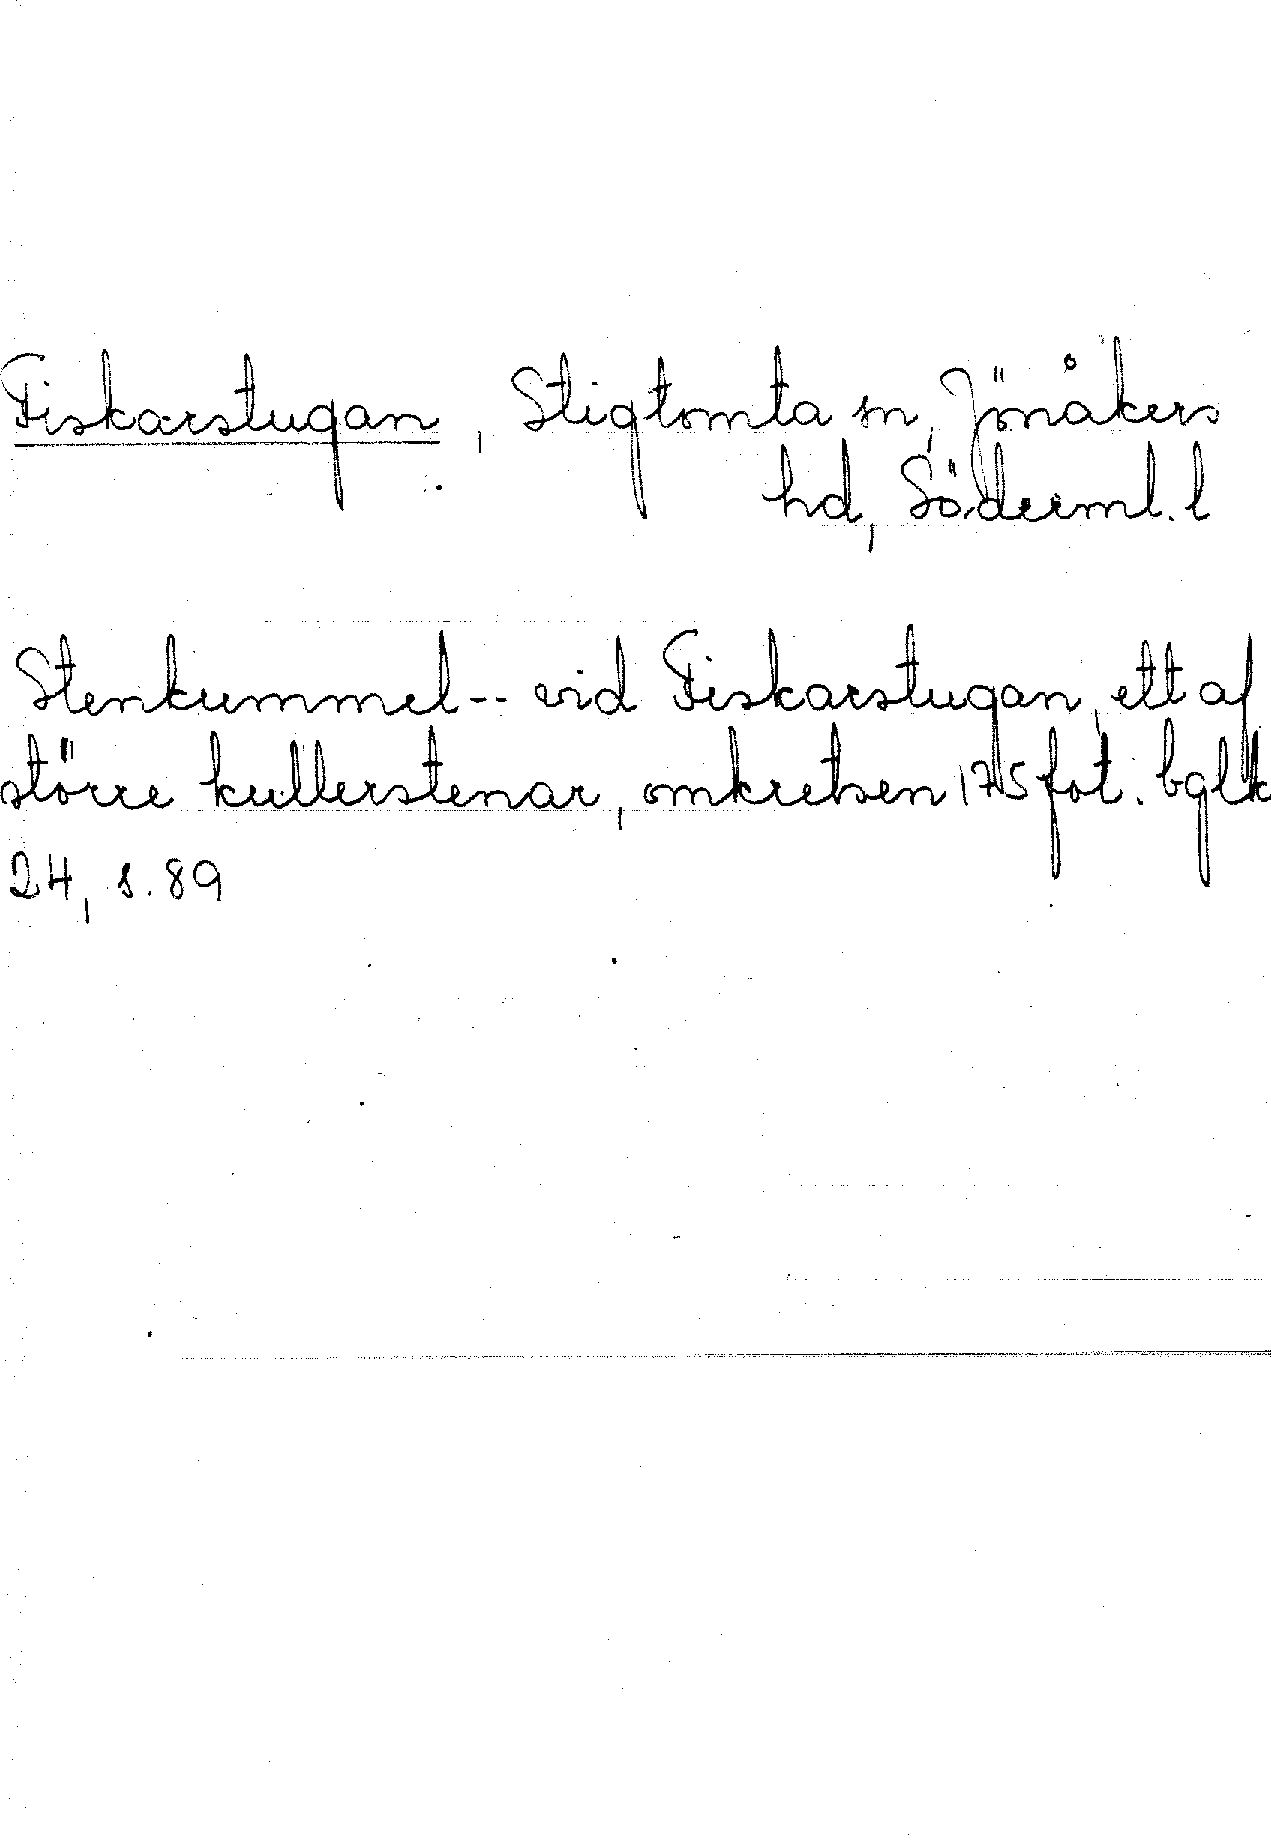 Fiskarstugan, Stigtomta sn, Jönåkers
hd, Söderml. l
Stenkummel -- vid Fiskarstugan, ett af
större kullerstenar, omkretsen 175 fot. bglk
24, s. 89